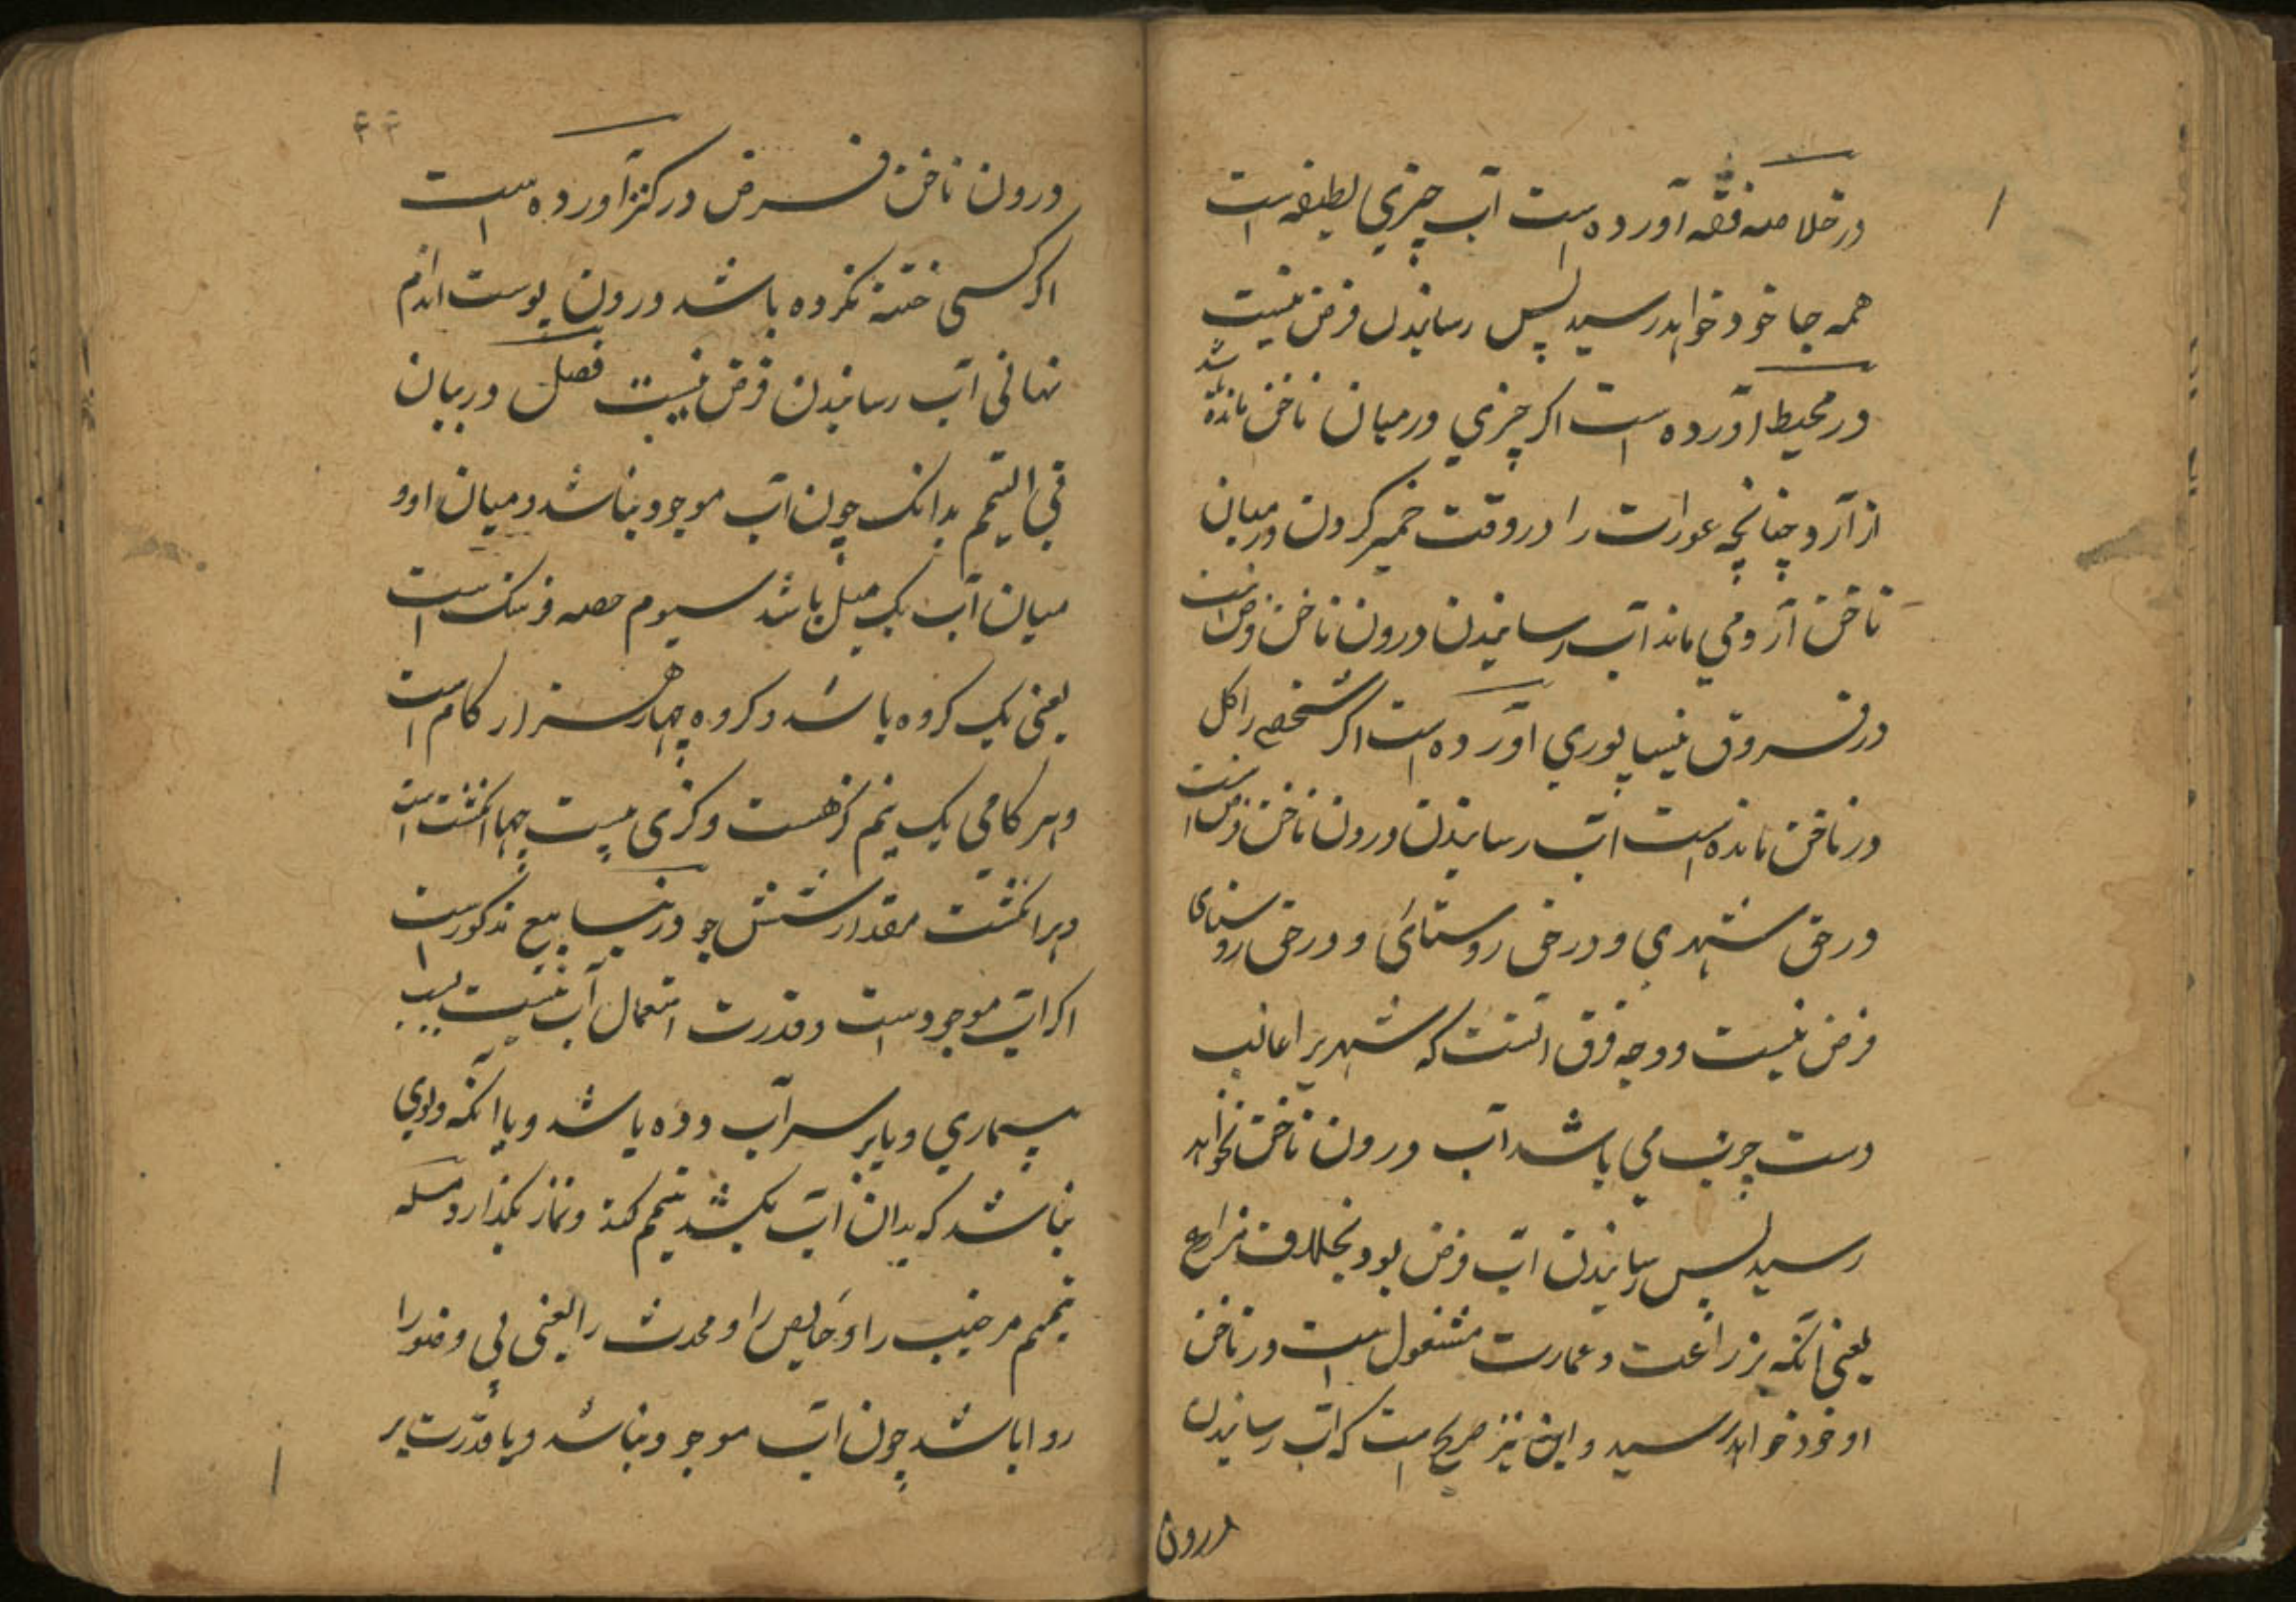 در خلاصه فقه آورده است آب چیزی لطیفه است
همه جا خود خواهد رسید پس رسانیدن فرض نیست
در محیط آورده است اکر چیزی درمیان ناخن مانده شد
از آرد چنانچه عورات را در وقت خمیر کردن درمیان
ناخن آرد می ماند آب رسانیدن درون ناخن فرض است
در فروق نیسابوری آورده است اکر شخصی را کل
در ناخن مانده است آب رسانیدن درون ناخن فرض است
در حق شهری و در حق روستائی و در حق روستای
فرض نیست و وجه فرق آنست که شهریرا غالب
دست چرب می باشد آب درون ناخن نخواهد
رسید پس رسانیدن آب فرض بود بخلاف مزارع
یعنی آنکه بزراعت و عمارت مشغول است در ناخن
او خود خواهد رسید و این نیز صریح است که آب رسانیدن
درون
۴۴
درون ناخن فرض در کنز آورده است
اکر کسی ختنه نکرده باشد درون پوست اندام
نهانی آب رسانیدن فرض نیست فصل در بیان
فی التیمم بدانک چون آب موجود نباشد و میان او و
میان آب یک میل باشد سیوم حصه فرسنک است
یعنی یک کروه باشد و کروه چهار هزار کام است
و هر کامی یک نیم کز هست و کزی بیست چهار انکشت است
و هر انکشت مقدار شش جو در ینابیع مذکور است
اکر آب موجود است و قدرت استعمال آب نیست بسبب
بیماری و یا بر سر آب دده باشد و یا آنکه دلوی
نباشد که بدان آب بکشد تیمم کند و نماز بکذارد مسله
تیمم مر جنب را و حایض را و محدث را یعنی بی وضو را
روا باشد چون آب موجود نباشد و یا قدرت بر